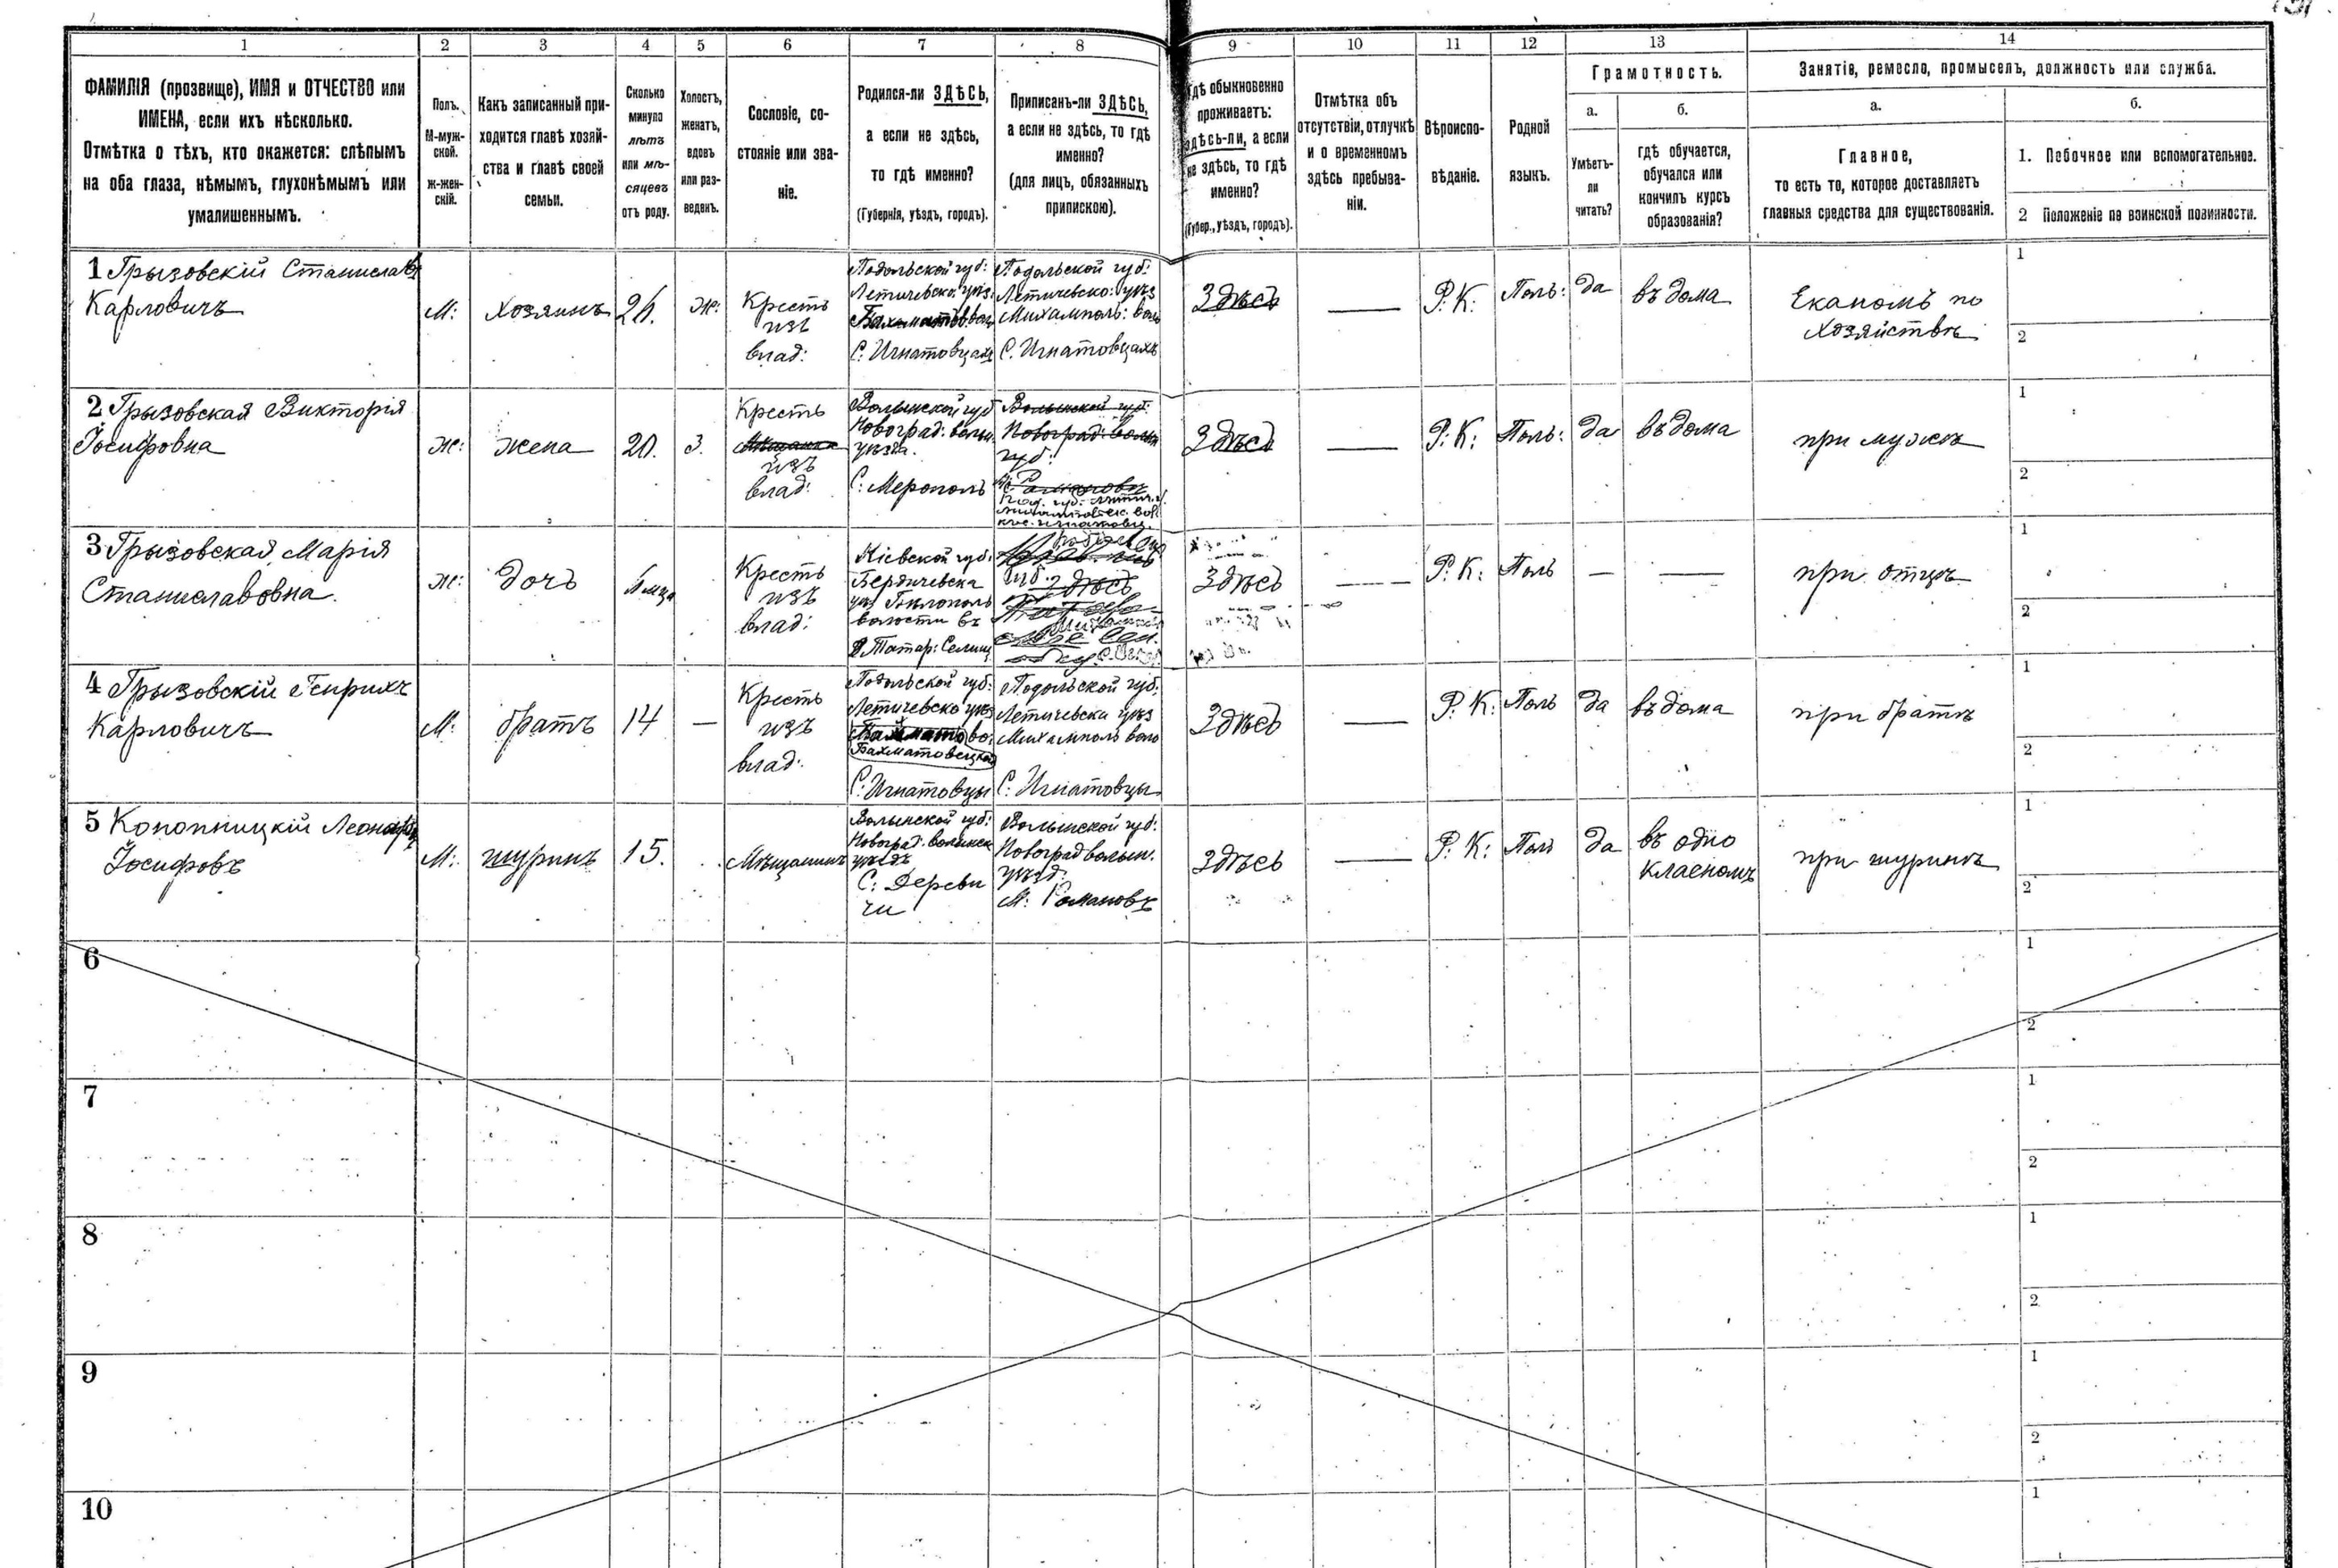 1 2 3 4 5 6 7 8 9 10 11 12 13 14
ФАМИЛІЯ (прозвище), ИМЯ и ОТЧЕСТВО или
ИМЕНА, если ихъ нѣсколько.
Отмѣтка о тѣхъ, кто окажется: слѣпымъ
на оба глаза, нѣмымъ, глухонѣмымъ или
умалишеннымъ.
Полъ.
М-муж-
ской.
ж-жен-
скій.
Какъ записанный при-
ходится главѣ хозяй-
ства и главѣ своей
семьи.
Сколько
минуло
лѣтъ
или мѣ-
сяцевъ
отъ роду.
Холостъ,
женатъ,
вдовъ
или раз-
веденъ.
Сословіе, со-
стояніе или зва-
ніе.
Родился-ли ЗДѢСЬ,
а если не здѣсь,
то гдѣ именно?
(Губернія, уѣздъ, городъ).
Приписанъ-ли ЗДѢСЬ,
а если не здѣсь, то гдѣ
именно?
(для лицъ, обязанныхъ
припискою).
Гдѣ обыкновенно
проживаетъ:
здѣсь-ли, а если
не здѣсь, то гдѣ
именно?
(Губер., уѣздъ, городъ).
Отмѣтка объ
отсутствіи, отлучкѣ
и о временномъ
здѣсь пребыва-
ніи.
Вѣроиспо-
вѣданіе.
Родной
языкъ.
Грамотность.
а.
Умѣетъ-
ли
читать?
б.
гдѣ обучается,
обучался или
кончилъ курсъ
образованія?
Занятіе, ремесло, промыселъ, должность или служба.
а.
Главное,
то есть то, которое доставляетъ
главныя средства для существованія.
б.
1. Побочное или вспомогательное.
2 Положеніе по воинской повинности.
1 Грызовскій Станиславъ
Карловичъ
М:
хозяинъ
26.
ж:
Кресть
изъ
влад:
Подольской губ:
Летичевско: уѣз.
С. Игнатовцахъ
Подольской губ:
Летичевско: уѣз
Михамполь: воль
С. Игнатовцахъ
Здѣсь
Р. К.
Поль:
да
въ дома
Екапомъ по
хозяйствѣ
1
2
2 Грызовская Викторія
Іосифовна
ж:
жена
20.
З.
Кресть
Мѣщанка
изъ
влад:
Волынской губ
Новоград: волын.
уѣзда.
С: Мерополь
Волынской губ:
Новоград: волын
губ:
Романовъ
Здѣсь
Р. К:
Поль:
да
въ дома
при мужѣ
1
2
3 Грызовская Марія
Станиславовна.
ж:
дочъ
Кресть
изъ
влад:
Кіевской губ:
Бердичевска
уѣз Бѣлополь
волости въ
Татар: Селищ
губ.
здѣсь
Здѣсь
Р. К:
Поль
при отцѣ
1
2
4 Грызовскій Генрихъ
Карловичъ
М:
братъ
14
Кресть
изъ
влад:
Подольской губ:
Летичевско уѣз
Бахматовецкой
С. Игнатовцы
Подольской губ.
Летичевска уѣз
Михамполь воло
С. Игнатовцы
Здѣсь
Р. К:
Поль
да
въ дома
при братѣ
1
2
5 Конопницкій Леонардъ
Іосифовъ
М:
шуринъ
15.
Мѣщанинъ
Волынской губ:
Новоград: волынск
уѣздъ
С: Дереви
чи
Волынской губ:
Новоград волын.
уѣзд:
М: Романовъ
здѣсь
Р. К:
Поль
да
въ одно
класномъ
при шуринѣ
1
2
6
1
2
7
1
2
8
1
2
9
1
2
10
1